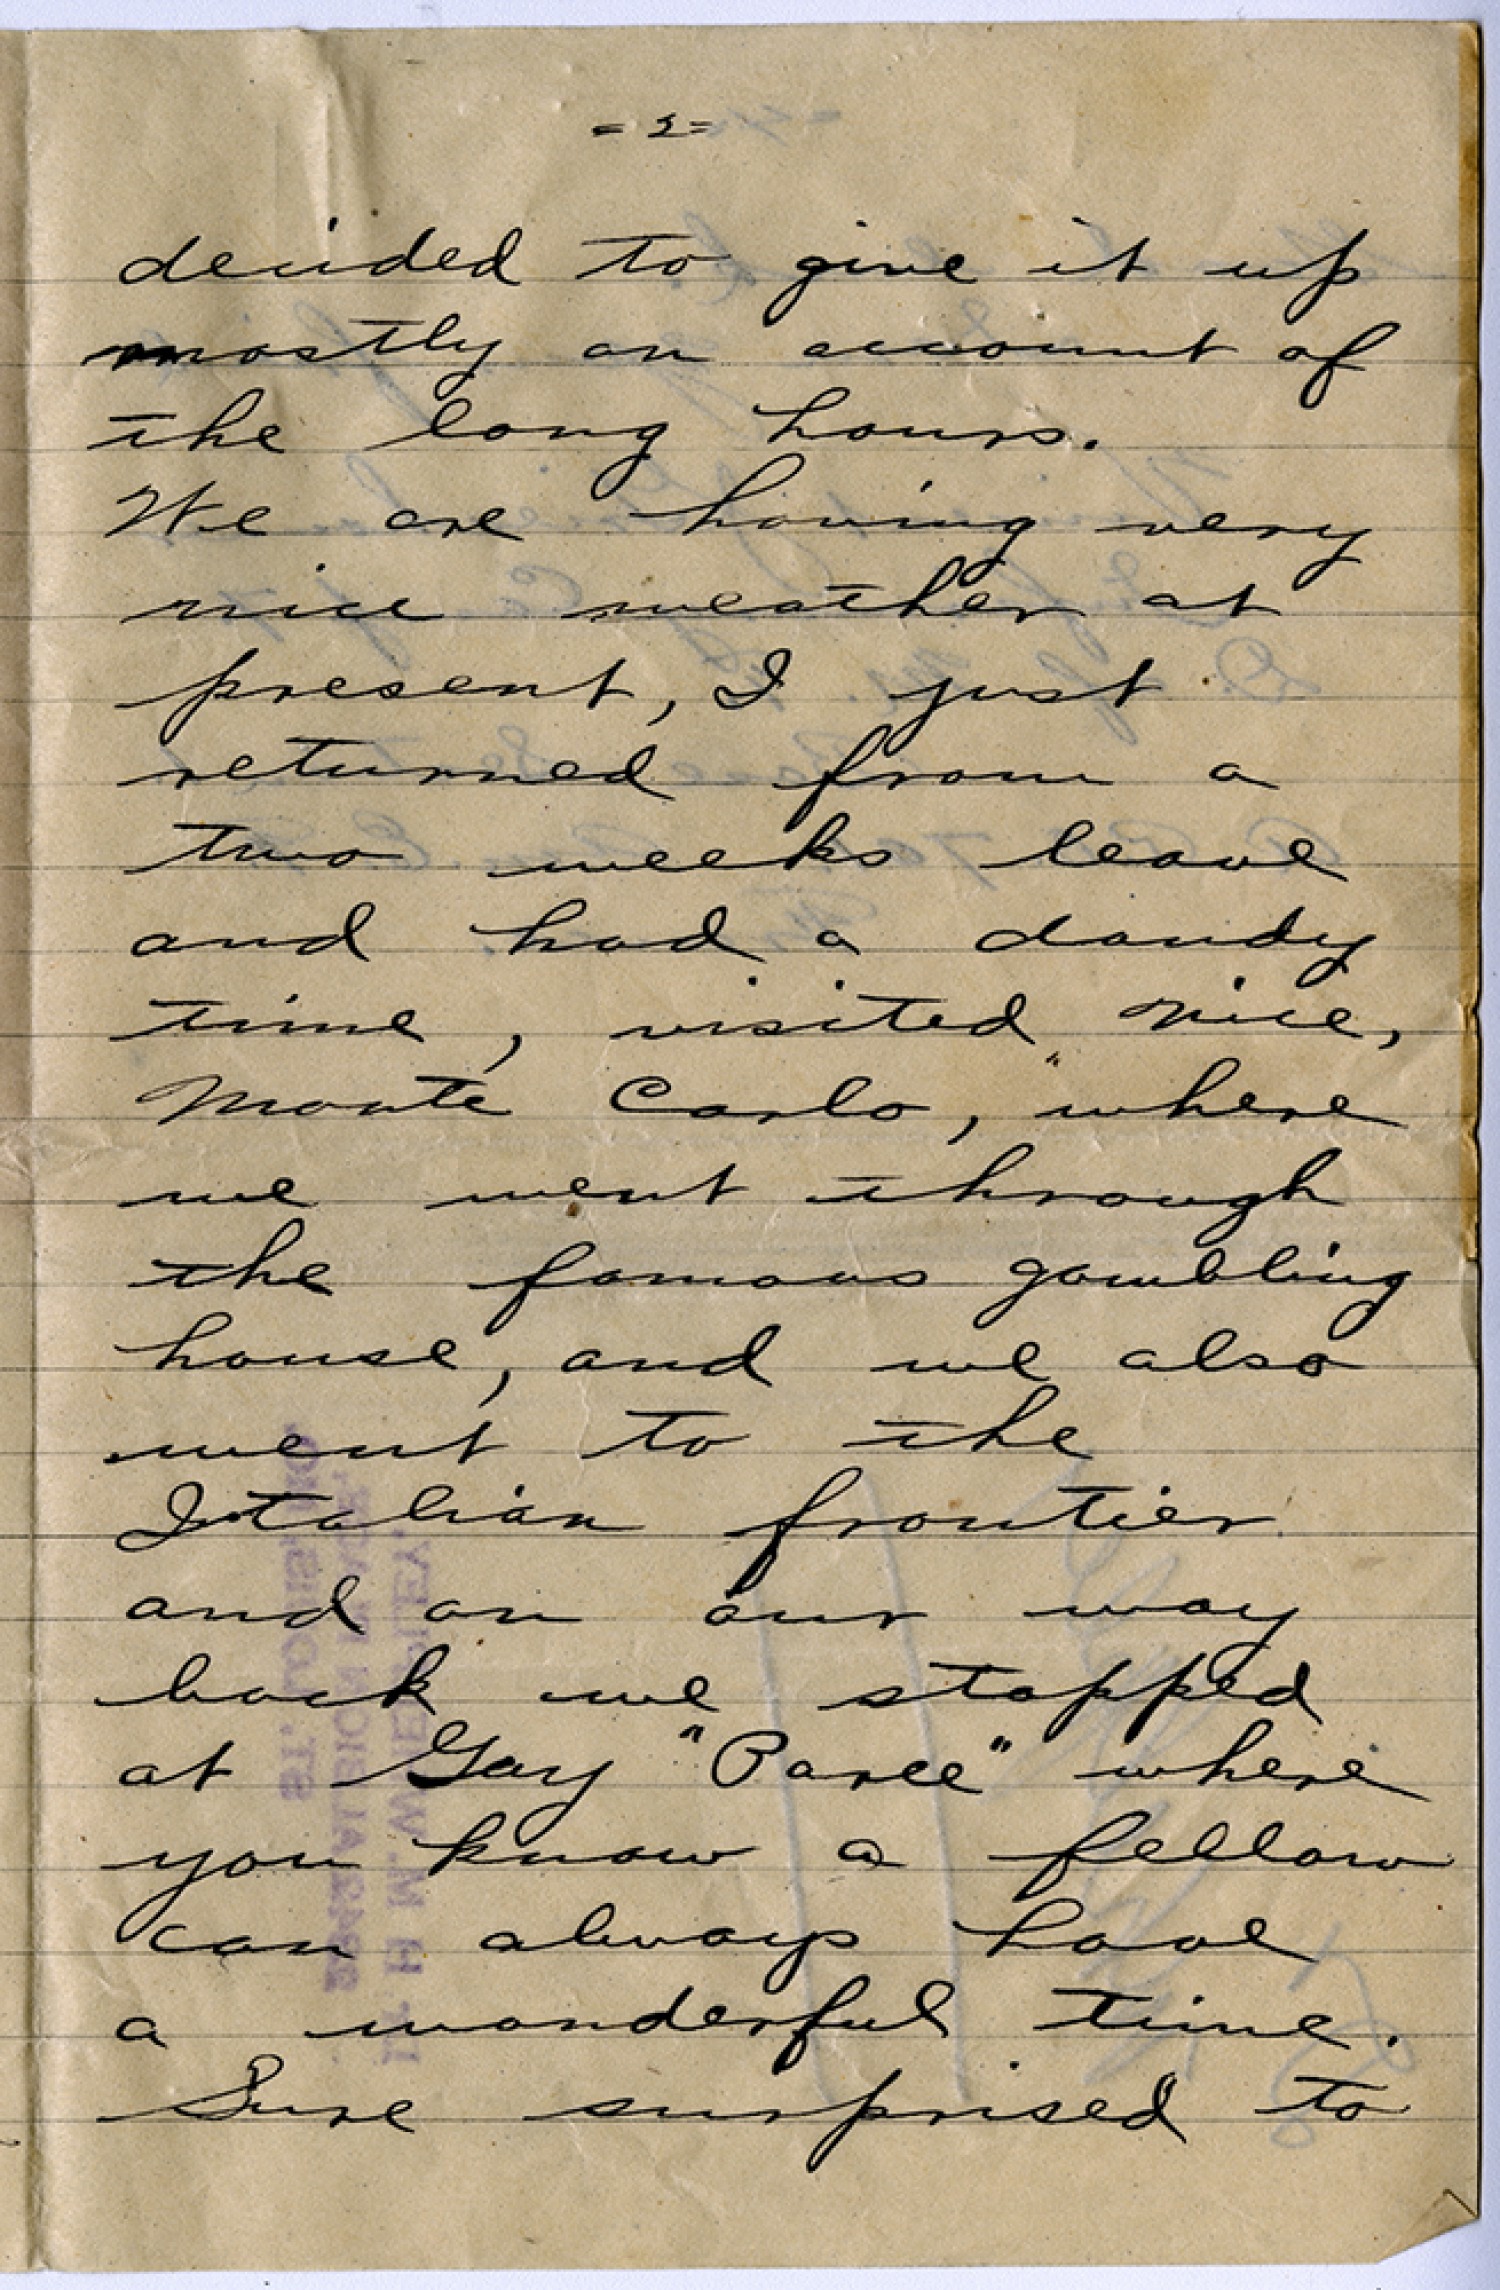 = 2 =
decided to give it up
mostly on account of
the long hours.
We are having very
nice weather at
present, I just
returned from a
two weeks leave
and had a dandy
time, visited Nice,
Monte Carlo, "where
we went through
the famous gambling
house, and we also
went to the
Italian frontier
and on our way
back we stopped
at Gay "Paree" where
you know a fellow
can always have
a wonderful time.
Sure surprised to